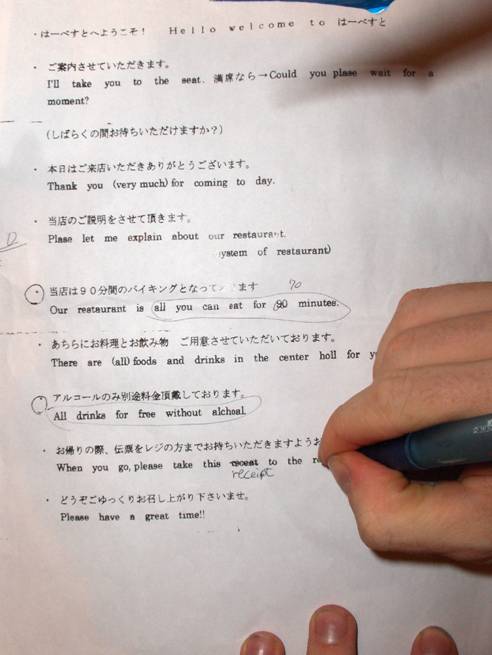 ・はーべすとへようこそ！ Hello welcome to はーべすと
・ご案内させていただきます。
I'll take you to the seat. 満席なら→Could you plase wait for a
moment?
(しばらくの間お待ちいただけますか？)
・本日はご来店いただきありがとうございます。
Thank you (very much) for coming to day.
・当店のご説明をさせて頂きます。
Plase let me explain about our restaurant.
ystem of restaurant)
70
・当店は９０分間のバイキングとなって ます
Our restaurant is all you can eat for 90 minutes.
・あちらにお料理とお飲み物 ご用意させていただいております。
There are (all) foods and drinks in the center holl for
・アルコールのみ別途料金頂戴しております。
All drinks for free without alchoal.
・お帰りの際、伝票をレジの方までお持ちいただきますようお
When you go, please take this to the
receipt
・どうぞごゆっくりお召し上がり下さいませ。
Please have a great time!!